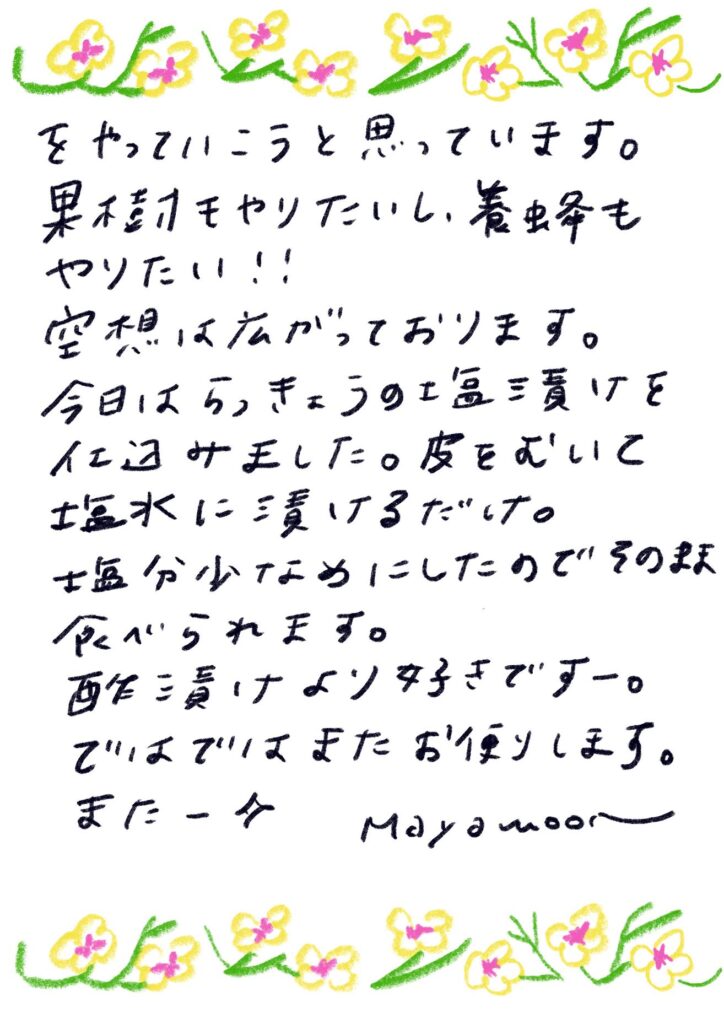 をやっていこうと思っています。
果樹もやりたいし、養蜂も
やりたい!!
空想は広がっております。
今日はらっきょうの塩漬けを
仕込みました。皮をむいて
塩水に漬けるだけ。
塩分少なめにしたのでそのまま
食べられます。
酢漬けより好きですー。
ではではまたお便りします。
またー今
Mayamoon